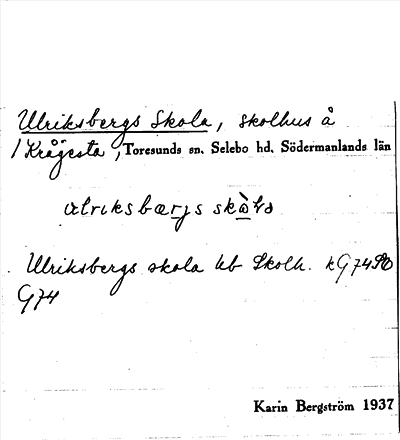 Ulriksbergs Skola, skolhus å
/Krågesta, Toresunds sn. Selebo hd. Södermanlands län
Ulriksbergs skola hb Skolh. kG74SO
G74
Karin Bergström 1937